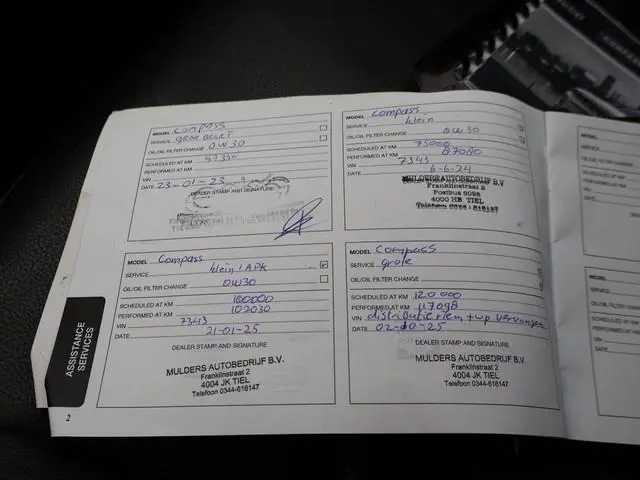 MODEL Compass
SERVICE GROTE BEURT
OIL/OIL FILTER CHANGE 0W30
SCHEDULED AT KM
PERFORMED AT KM
VIN
DATE 23-01-23
DEALER STAMP AND SIGNATURE
MODEL Compass
SERVICE klein
OIL/OIL FILTER CHANGE 0W30
SCHEDULED AT KM 75000
PERFORMED AT KM 87080
VIN 7343
DATE 6-6-24
MULDERS AUTOBEDRIJF B.V
Franklinstraat 2
Postbus 6098
4000 HB TIEL
Telefoon 0344-616147
MODEL Compass
SERVICE klein / APK
OIL/OIL FILTER CHANGE 0W30
SCHEDULED AT KM 100000
PERFORMED AT KM 102030
VIN 7343
DATE 21-01-25
DEALER STAMP AND SIGNATURE
MULDERS AUTOBEDRIJF B.V.
Franklinstraat 2
4004 JK TIEL
Telefoon 0344-616147
MODEL Compass
SERVICE Grote
OIL/OIL FILTER CHANGE
SCHEDULED AT KM 120.000
PERFORMED AT KM 117098
VIN distributieriem + wp vervangen
DATE 02-10-25
DEALER STAMP AND SIGNATURE
MULDERS AUTOBEDRIJF B.V.
Franklinstraat 2
4004 JK TIEL
Telefoon 0344-616147
ASSISTANCE
SERVICES
2
MODEL
SERVICE
OIL/OIL
SCHEDULED
PERFORMED
VIN
DATE
MODEL
SERVICE
OIL/OIL
SCHEDULED
PERFORMED
VIN
DATE